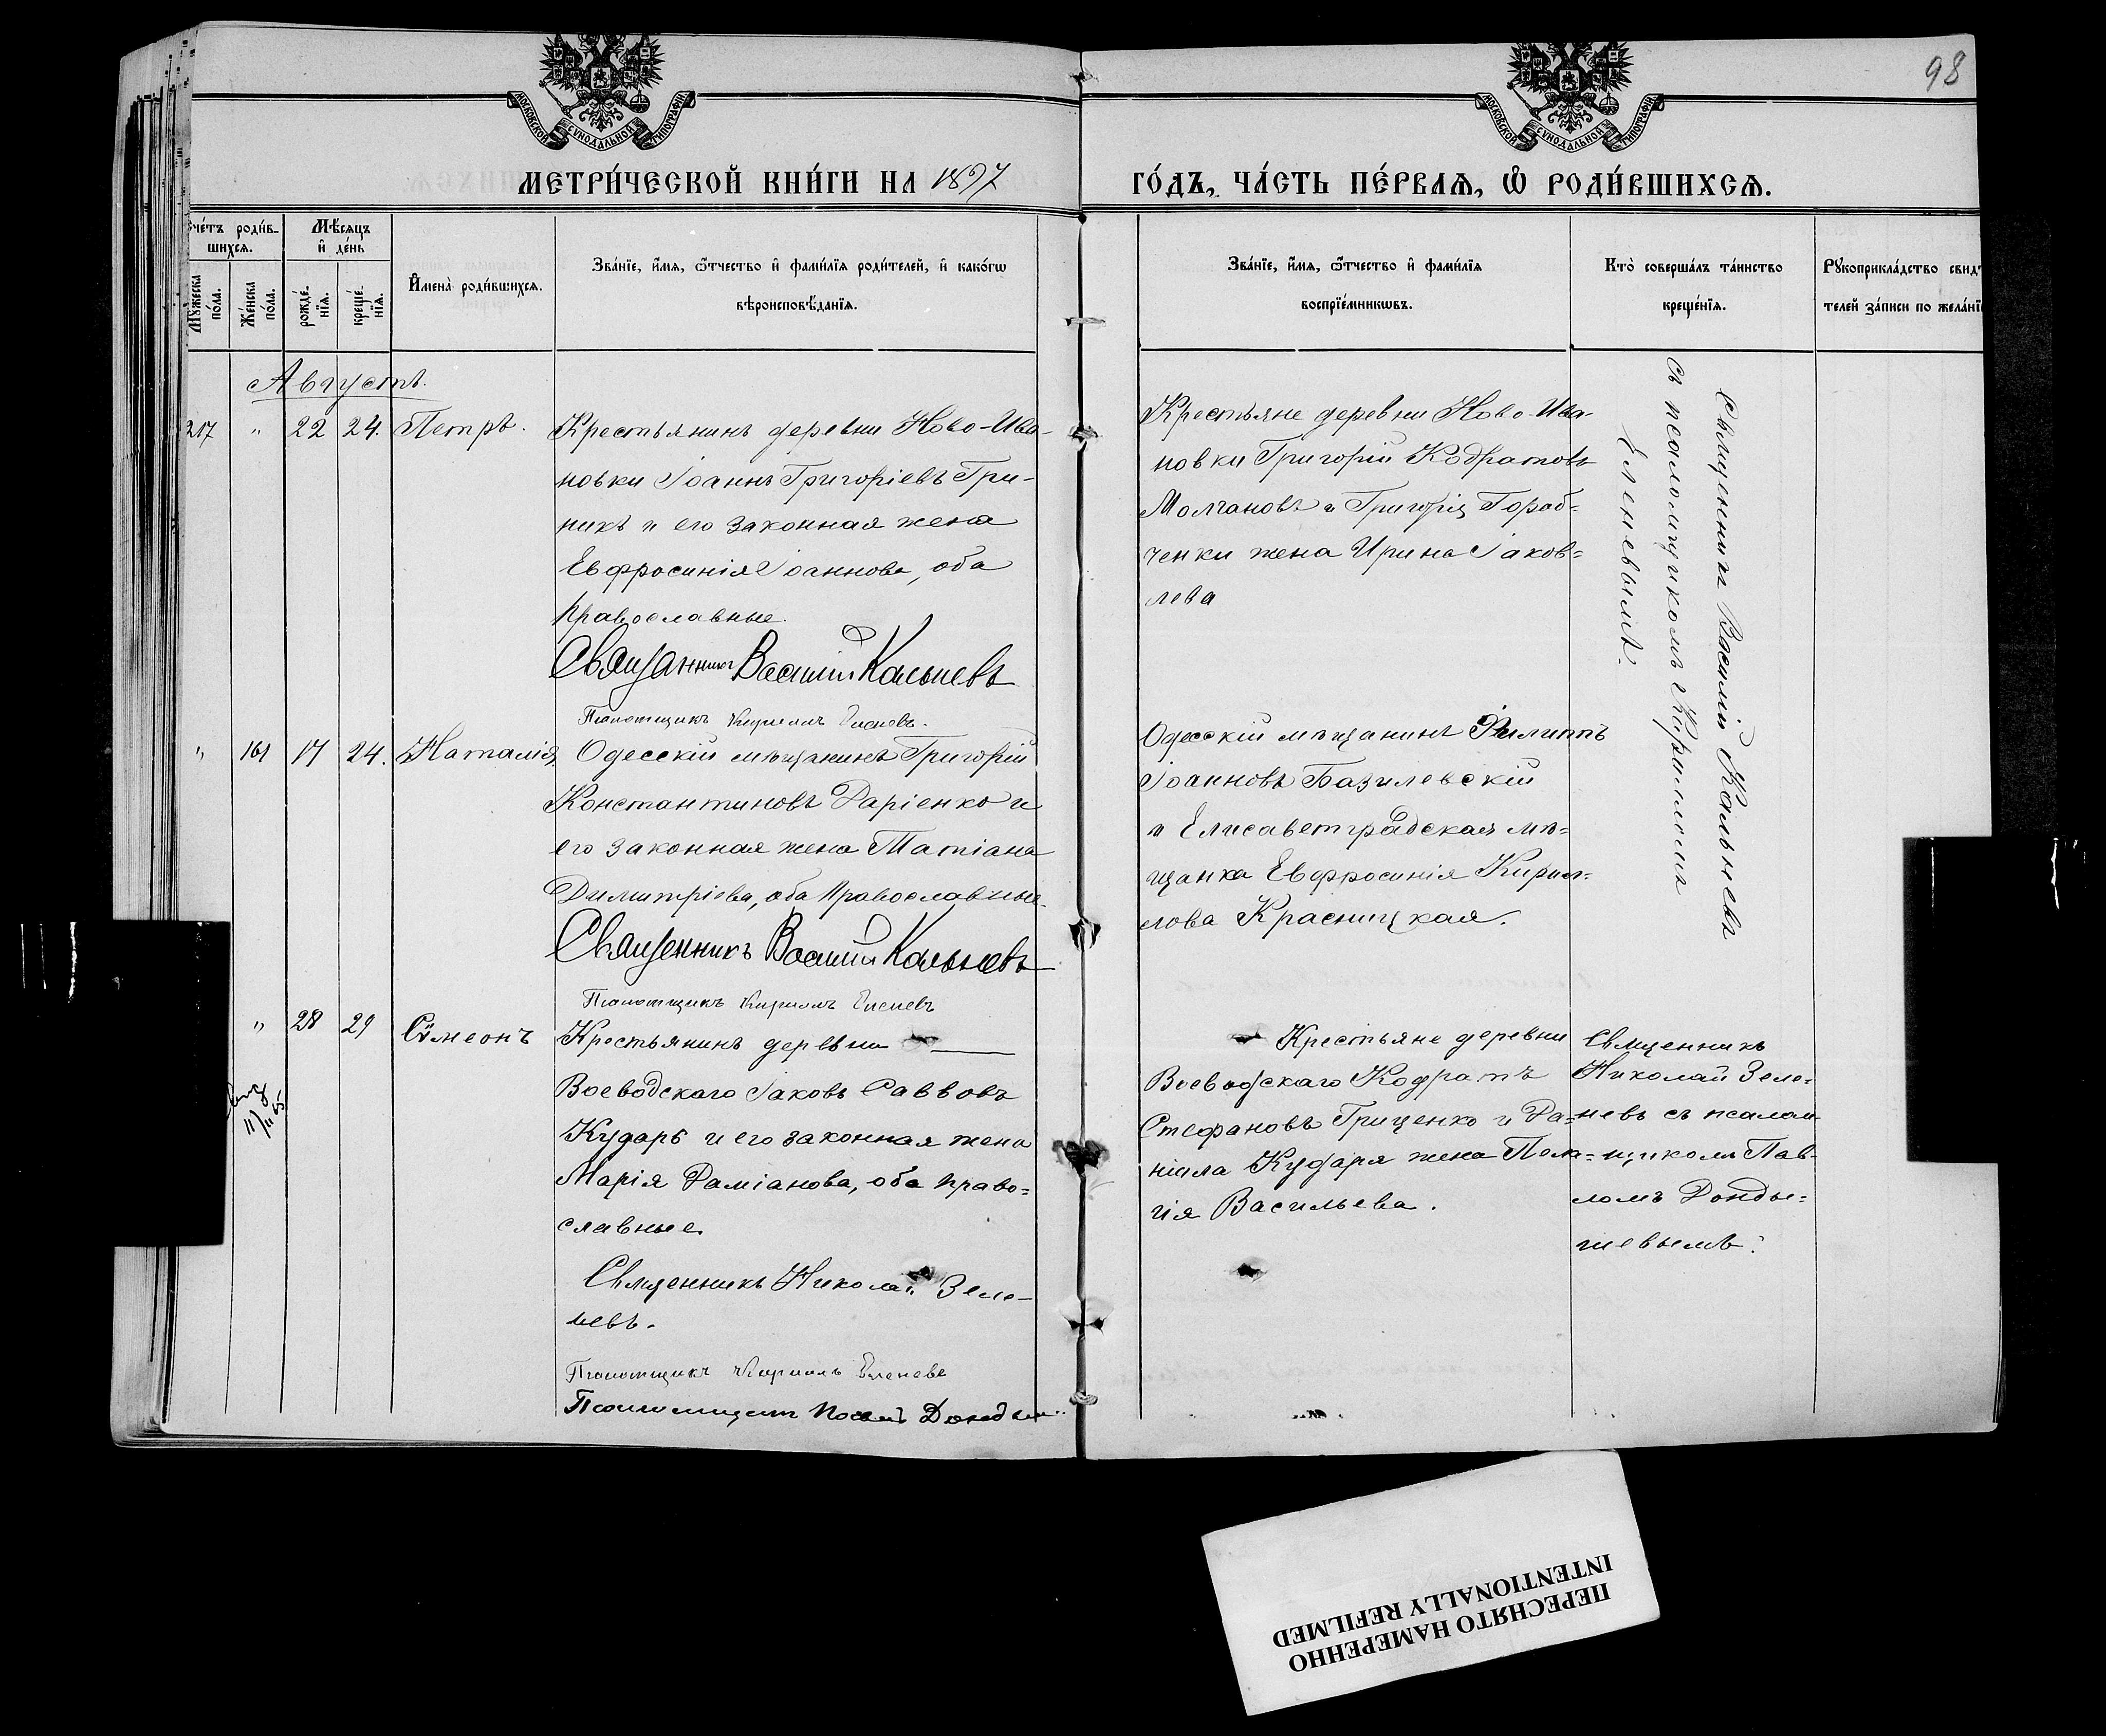 98
МОСКОВСКОЙ СѴНОДАЛЬНОЙ ТИПОГРАФІИ
МОСКОВСКОЙ СѴНОДАЛЬНОЙ ТИПОГРАФІИ
МЕТРИ́ЧЕСКОЙ КНИ́ГИ НА 1897
ГО́ДЪ, ЧА́СТЬ ПЕ́РВАѦ, Ѽ РОДИ́ВШИХСѦ.
Сче́тъ роди́в-
шихсѧ.
Мѣ́сѧцъ
и҆ де́нь
Мꙋ́жеска по́ла.
Же́нска по́ла.
рожде́-нїѧ.
креще́-нїѧ.
И҆мена̀ роди́вшихсѧ.
Зва́нїе, и҆́мѧ, ѻ҆́тчество и҆ фами́лїѧ роди́телей, и҆ како́гѡ
вѣроисповѣ́данїѧ.
Зва́нїе, и҆́мѧ, ѻ҆́тчество и҆ фами́лїѧ
воспрїе́мникѡвъ.
Кто̀ соверша́лъ та́инство
креще́нїѧ.
Рꙋкоприкла́дство свидѣ
телей за́писи по жела́нї
Августъ.
217 " 22 24. Петръ.
Крестьянинъ деревни Ново-Ива-
новки Іоаннъ Григоріевъ Гри-
никъ и его законная жена
Евфросинія Іоаннова, оба
православные.
Священникъ Василій Кальневъ
Псаломщикъ Кириллъ Еленевъ.
Крестьяне деревни Ново-Ива-
новки Григорій Кодратовъ
Молчановъ и Григорія Город-
ченки жена Ирина Іаков-
лева
Священникъ Василій Кальневъ
съ псаломщикомъ Кирилломъ
Еленевымъ.
" 161 17 24. Наталія.
Одесскій мѣщанинъ Григорій
Константиновъ Даріенко и
его законная жена Татіана
Димитріева, оба православные.
Священникъ Василій Кальневъ
Псаломщикъ Кириллъ Еленевъ
Одесскій мѣщанинъ Филиппъ
Іоанновъ Базилевскій
и Елисаветградская мѣ-
щанка Евфросинія Кирил-
лова Красницкая.
" 28 29 Сѵмеонъ
11/II 65
Крестьянинъ деревни
Воеводскаго Іаковъ Саввовъ
Кударь и его законная жена
Марія Даміанова, оба право-
славные.
Священникъ Николай Зеле-
невъ.
Псаломщикъ Кириллъ Еленевъ
Псаломщикъ Павелъ
Крестьяне деревни
Воеводскаго Кодратъ
Стефановъ Гриценко и Да-
ніила Кударя жена Пела-
гія Васильева.
Священникъ
Николай Зеле-
невъ съ псалом-
щикомъ Пав-
ломъ Донды-
шевымъ.
ПЕРЕСНЯТО НАМЕРЕННО
INTENTIONALLY REFILMED